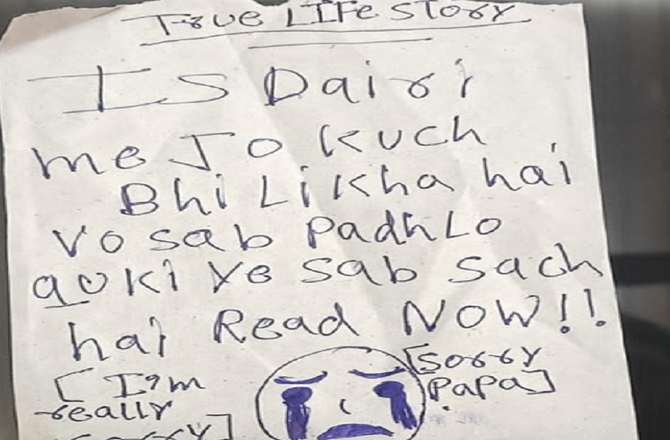 True LIFe story
IS Dairi
me Jo kuch
Bhi Likha hai
Vo sab padhLo
quki ye sab sach
hai Read NOW!!
[Sorry
Papa]
[I'm
really
sorry]